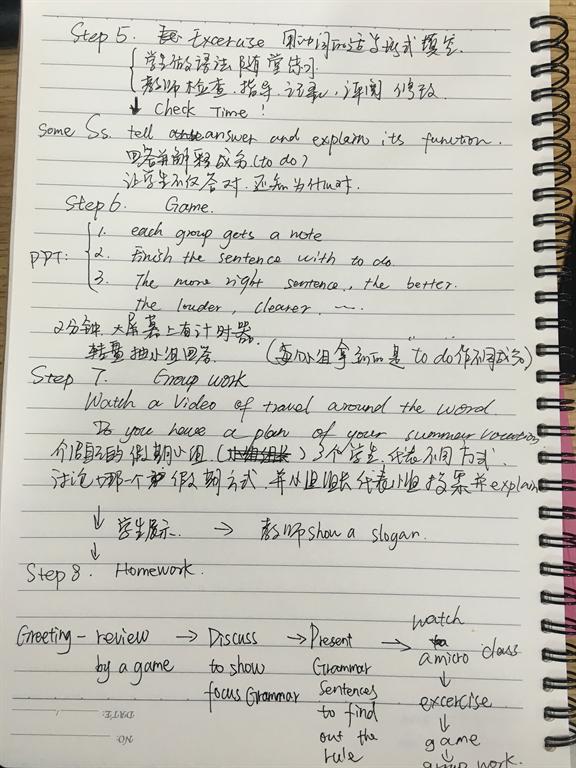 Step 5. Excercise 用动词的适当形式填空.
学生做语法随堂练习
教师检查、指导、记录、评阅修改
↓ Check Time!
Some Ss. tell answer and explain its function.
回答并解释成分(to do)
让学生不仅答对,还知为什么对.
Step 6. Game.
1. each group gets a note
PPT: 2. Finish the sentence with to do.
3. The more right sentence, the better.
the louder, clearer, ....
2分钟.大屏幕上有计时器.
转盘抽小组回答. (每个小组拿到的是"to do"作不同成分)
Step 7. Group work
Watch a Video of travel around the word.
Do you have a plan of your summer vacation
介绍的假期小组()3个学生代表不同方式.
讨论哪一个假期方式,并小组组长代表小组投票并explain
↓ 学生展示. → 教师show a slogan.
↓
Step 8. Homework.
Greeting - review by a game → Discuss to show focus Grammar → Present Grammar Sentences to find out the rule → watch a micro class
↓
excercise
↓
game
↓
group work.
DATE:
NO: